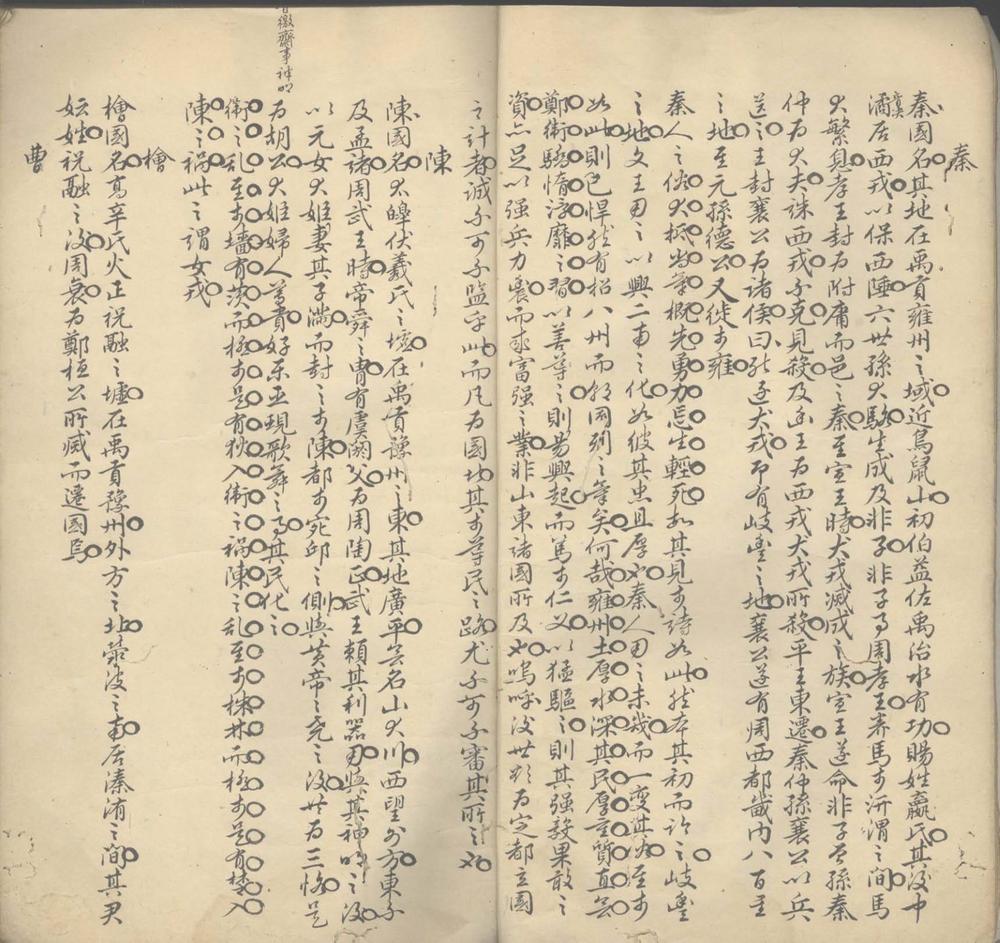 秦
秦國名其地在禹貢雍州之域近鳥鼠山初伯益佐禹治水有功賜姓嬴氏其後中
潏居西戎以保西陲六世孫大駱生成及非子非子事周孝王养馬於汧渭之間馬
大繁息孝王封为附庸而邑之秦至宣王時犬戎滅成之族宣王遂命非子曾孫秦
仲为大夫誅西戎不克見殺及幽王为西戎犬戎所殺平王東遷秦仲孫襄公以兵
送之王封襄公为诸侯曰能逐犬戎即有岐豐之地襄公遂有周西都畿内八百里
之地至元孫德公又徙於雍
秦人之俗大抵尚氣概先勇力忘生輕死如其見於诗如此然本其初而论之岐豐
之地文王用之以興二南之化如彼其忠且厚也秦人用之未幾而一变其俗至於
如此則已悍然有招八州而朝同列之氣矣何哉雍州土厚水深其民厚重質直無
鄭衛驕惰浮靡之習以善導之則易興起而篤於仁义以猛驅之則其强毅果敢之
資亦足以强兵力農而求富强之業非山東诸國所及也嗚呼後世欲为定都立國
之计者诚不可不監乎此而凡为國者其於導民之路尤不可不審其所之也
陳
陳國名大皡伏羲氏之墟在禹貢豫州之東其地廣平無名山大川西望外方東不
及孟诸周武王時帝舜之胄有虞阏父为周陶正武王賴其利器用與其神明之後
以元女大姬妻其子滿而封之於陳都於宛邱之側與黄帝帝尧之後共为三恪是
为胡公大姬婦人尊貴好乐巫覡歌舞之事其民化之
衛之乱至於墻有茨而極於是有狄入衛之禍陳之乱至於株林而極於是有楚入
陳之禍此之謂女戎
檜
檜國名高辛氏火正祝融之墟在禹貢豫州外方之北滎波之南居溱洧之間其君
妘姓祝融之後周衰为鄭桓公所滅而遷國焉
曹